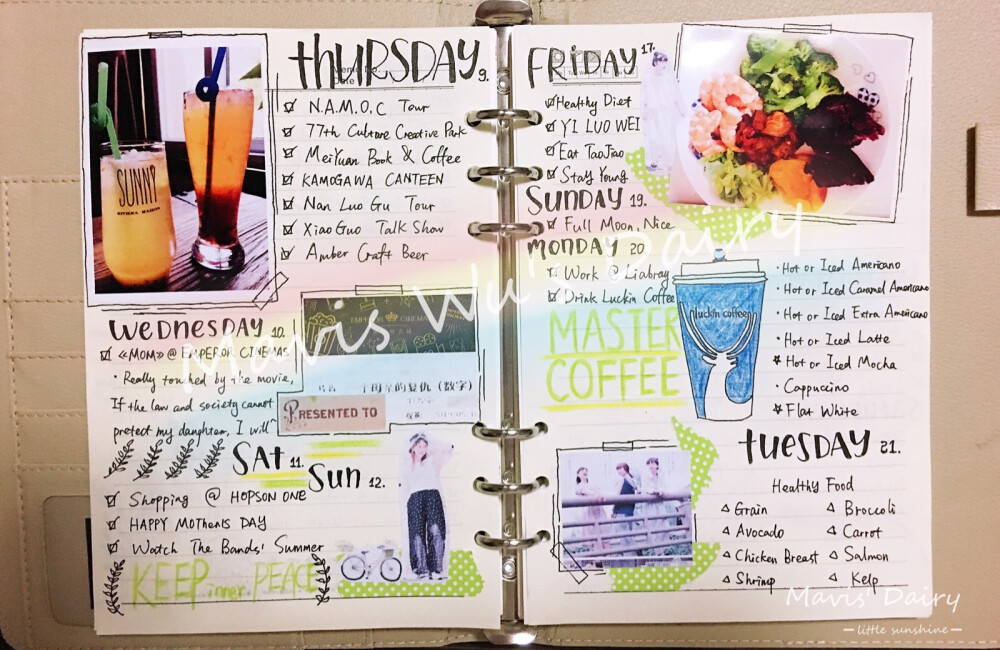 thURSDAY 9.
N.A.M.O.C Tour
77th Culture Creative Park
MeiYuan Book & Coffee
KAMOGAWA CANTEEN
Nan Luo Gu Tour
XiaoGuo Talk Show
Amber Craft Beer
SUNNY
RIVIERA MAISON
WEDNESDAY 10.
《MOM》@ EMPEROR CINEMAS
· Really touched by the movie,
If the law and society cannot
pretect my daughter, I will~
EMPEROR CINEMAS
母亲的复仇(数字)
PRESENTED TO
SAt 11.
Sun 12.
Shopping @ HOPSON ONE
HAPPY MOTHERS DAY
Watch The Bands' Summer
KEEP inner PEACE
FRiDAY 17.
Healthy Diet
YI LUO WEI
Eat TaoJiao
Stay Young
SUNDAY 19.
Full Moon, Nice
MONDAY 20
Work @ Liabray
Drink Luckin Coffee
MASTER
COFFEE
luckin coffee
· Hot or Iced Americano
· Hot or Iced Caramel Americano
· Hot or Iced Extra Americano
· Hot or Iced Latte
Hot or Iced Mocha
· Cappuccino
Flat White
tUESDAY 21.
Healthy Food
Δ Grain
Δ Broccoli
Δ Avocado
Δ Carrot
Δ Chicken Breast
Δ Salmon
Δ Shrimp
Δ Kelp
Mavis Wu's Dairy
Mavis' Dairy
— little sunshine —